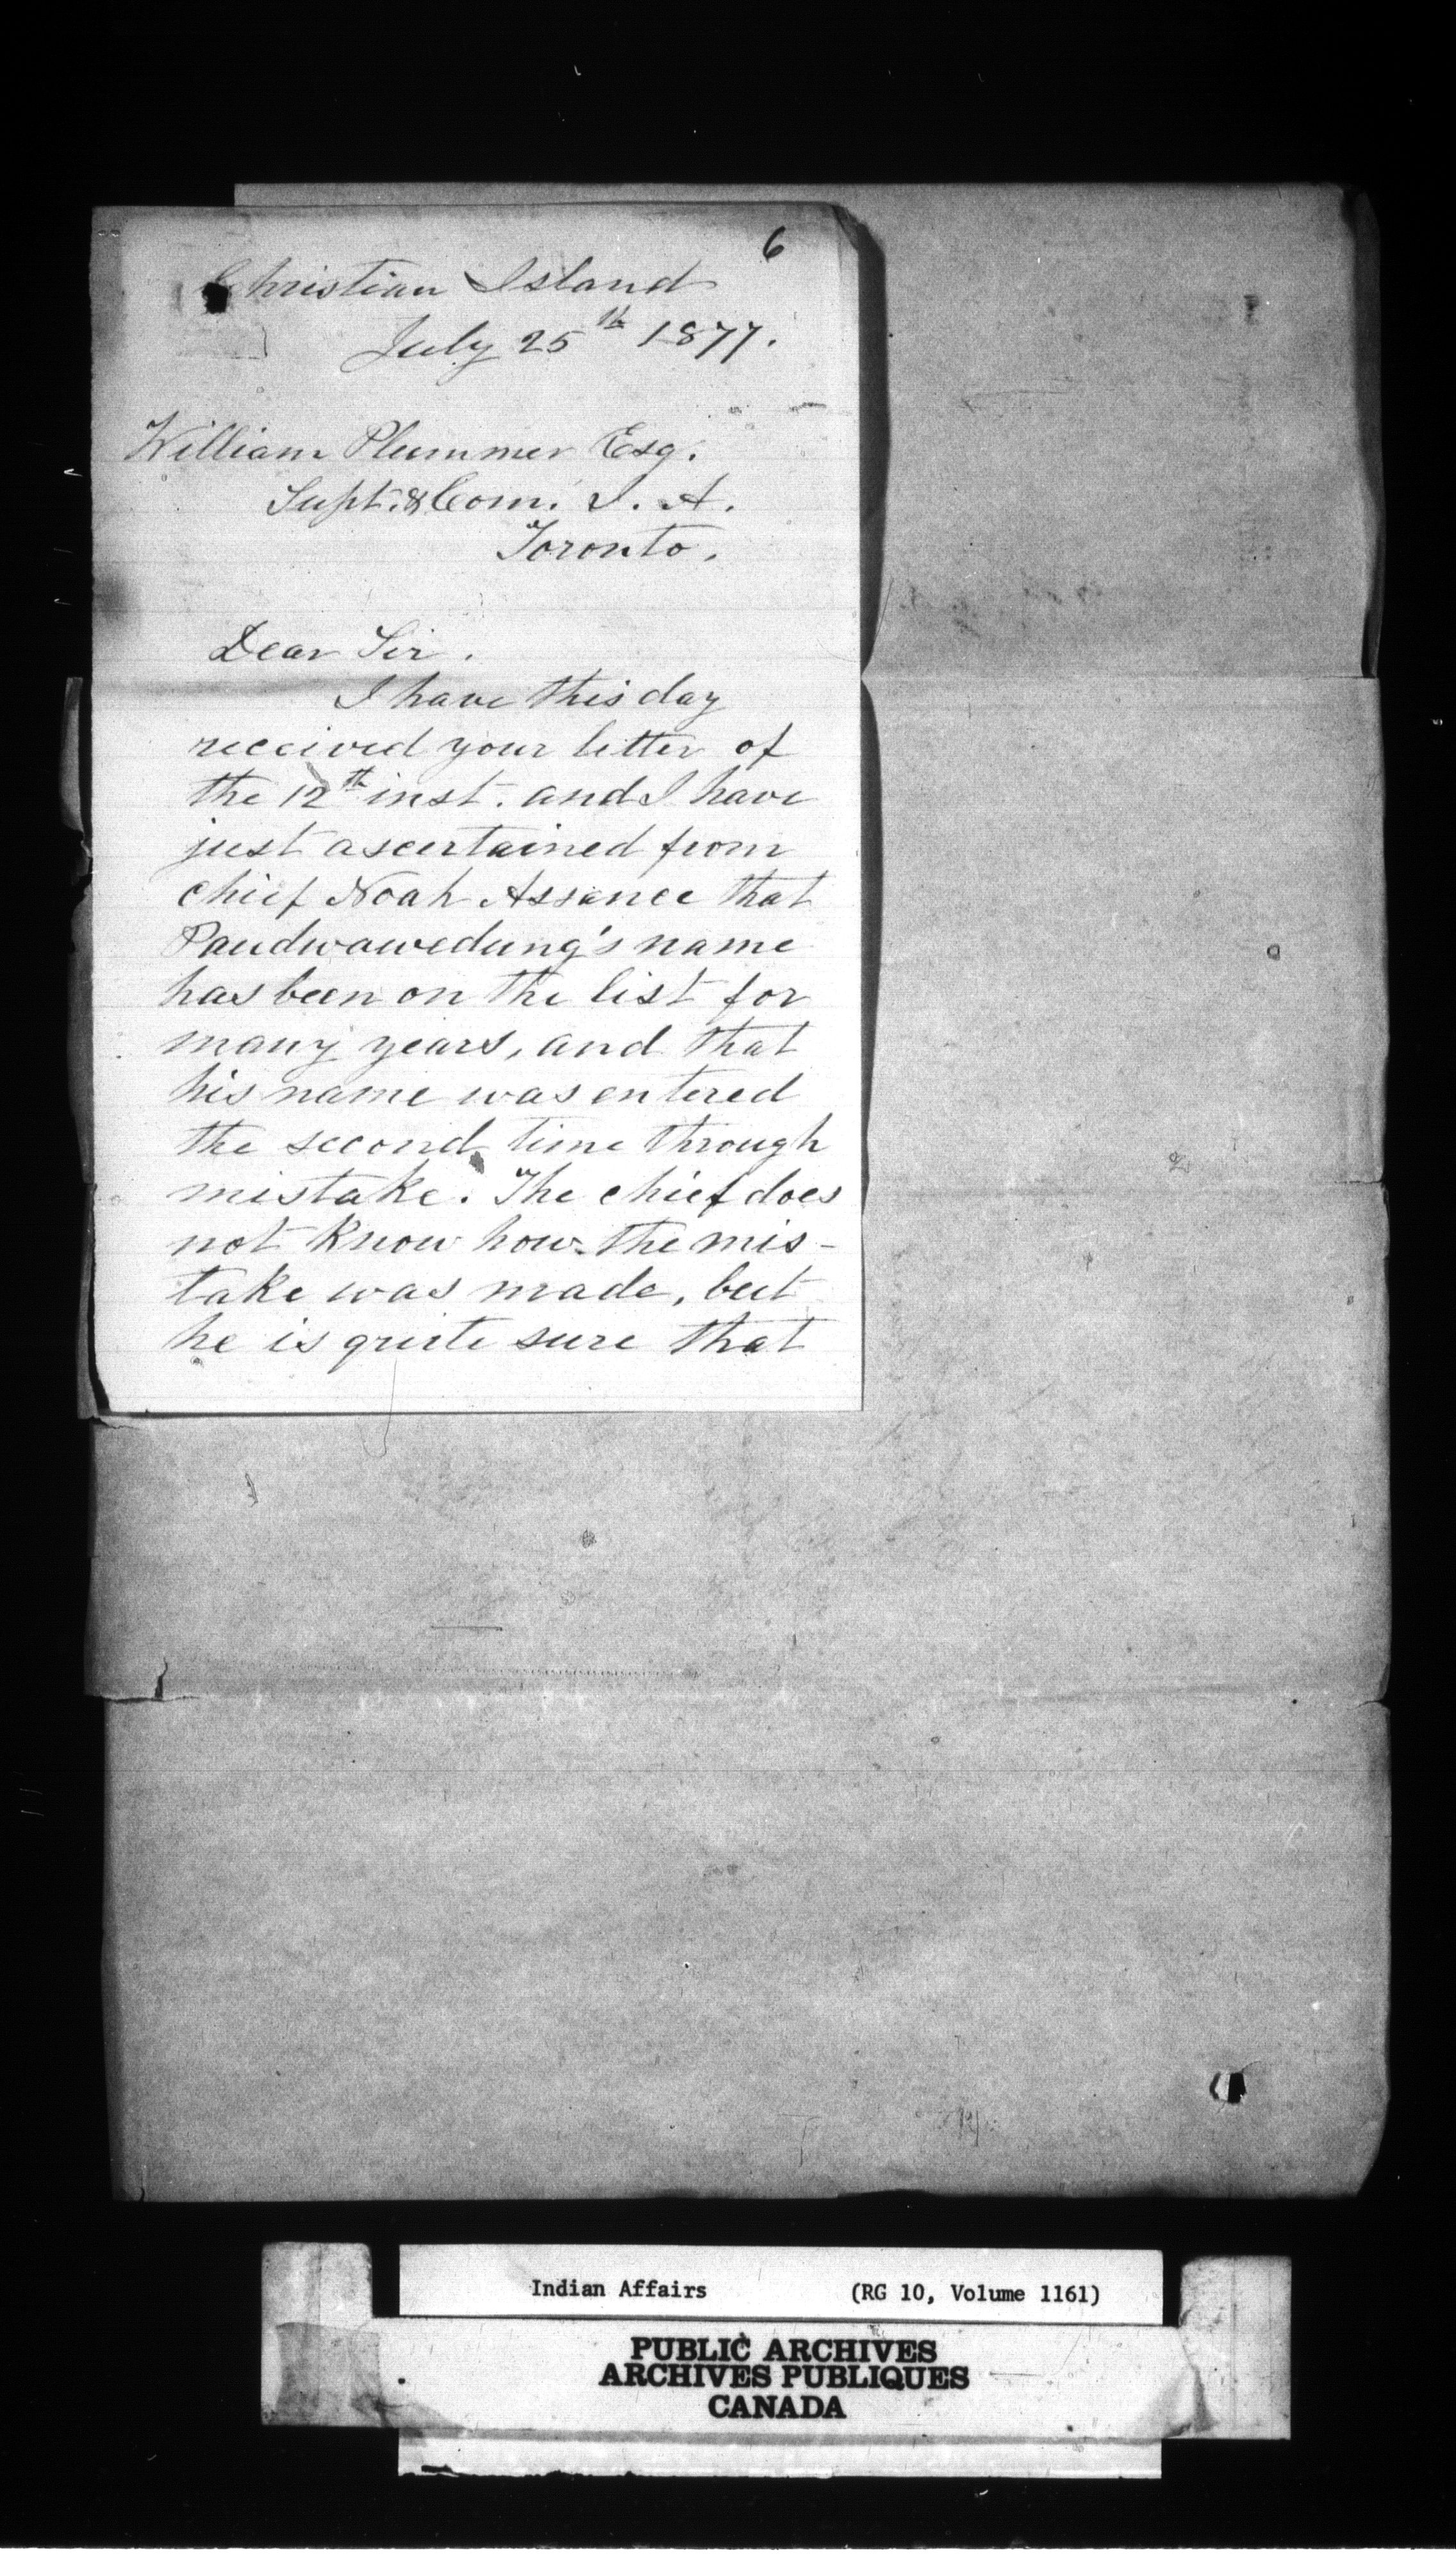 6
Christian Island
July 25th 1877.
William Plummer Esq.
Supt. & Com. I. A.
Toronto.
Dear Sir.
I have this day
received your letter of
the 12th inst. and I have
just ascertained from
chief Noah Assance that
Paudwawedung's name
has been on the list for
many years, and that
his name was entered
the second time through
mistake. The chief does
not know how the mis-
take was made, but
he is quite sure that
Indian Affairs (RG 10, Volume 1161)
PUBLIC ARCHIVES
ARCHIVES PUBLIQUES
CANADA